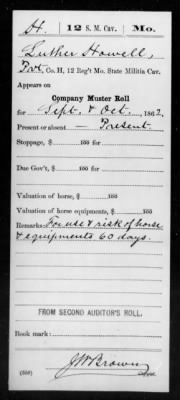 H | 12 S. M. Cav. | Mo.
Luther Howell,
Pvt, Co. H, 12 Reg't Mo. State Militia Cav.
Appears on
Company Muster Roll
for Sept. & Oct., 1862.
Present or absent — Present.
Stoppage, $ 100 for
Due Gov't, $ 100
Valuation of horse, $ 100
Valuation of horse equipments, $ 100
Remarks: For use & risk of horse
& equipments 60 days.
FROM SECOND AUDITOR'S ROLL.
Book mark:
J W Brown
(358) Copyist.